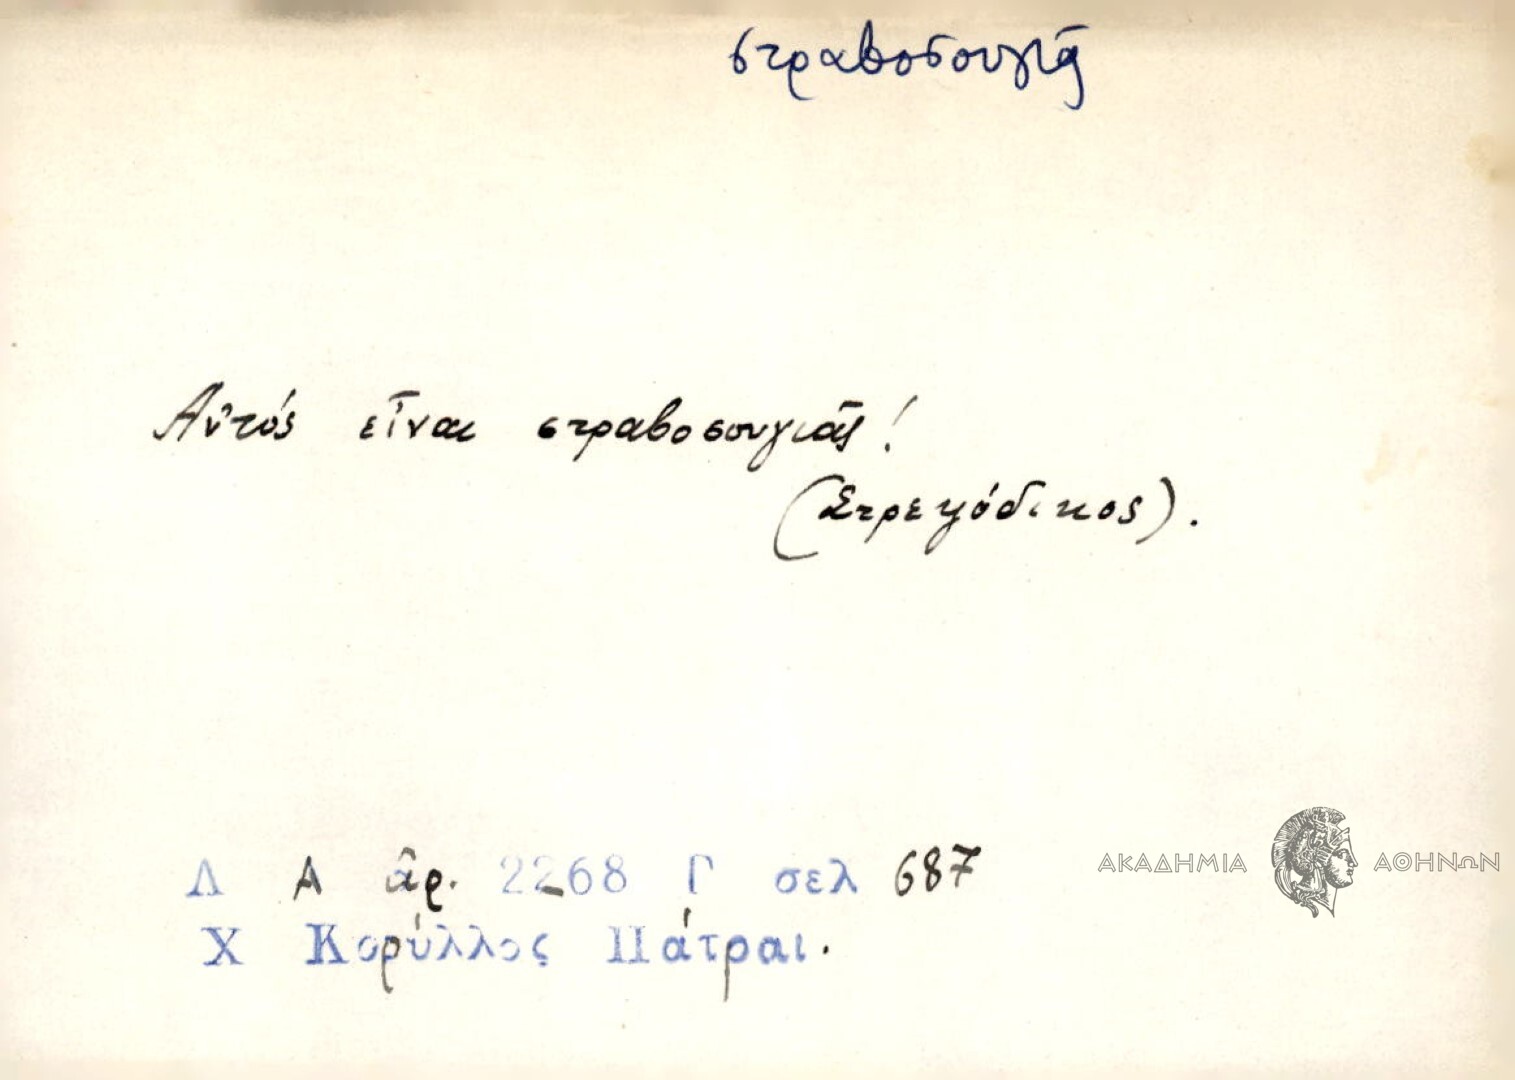 στραβοσουγιᾶ
Αὐτός εἶναι στραβοσουγιᾶς!
(Στρεψόδικος).
Λ Α ἀρ. 2268 Γ σελ 687
Χ Κορύλλος Πάτραι.
ΑΚΑΔΗΜΙΑ ΑΘΗΝΩΝ